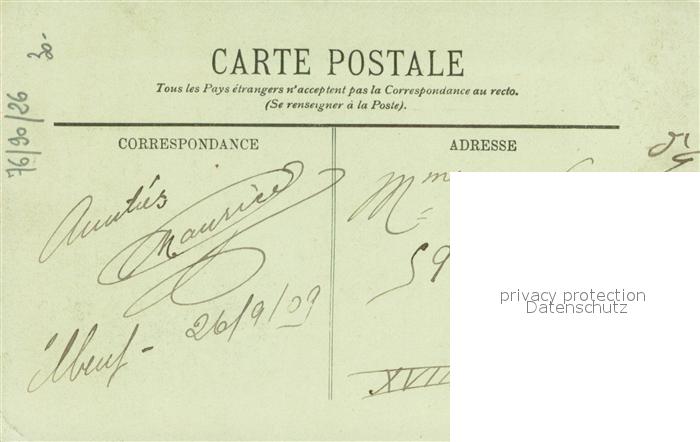 CARTE POSTALE
Tous les Pays étrangers n'acceptent pas la Correspondance au recto.
(Se renseigner à la Poste).
CORRESPONDANCE
ADRESSE
76/90/26
30-
Amitiés
Maurice
Elbeuf - 26/9/09
Mme
59
XVII
privacy protection
Datenschutz